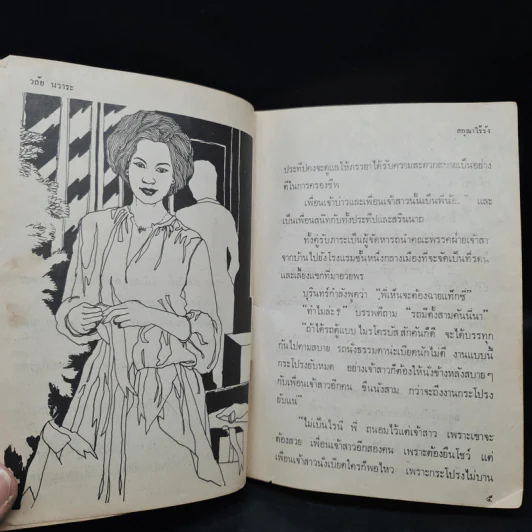 วลัย นวาระ
สกุณาไร้รัง
ประทีปคงจะดูแลให้ภรรยาได้รับความสะดวกสบายเป็นอย่าง
ดีในการครองชีพ
เพื่อนเจ้าบ่าวและเพื่อนเจ้าสาวนั้นเป็นพี่น้อง และ
เป็นเพื่อนสนิทกับทั้งประทีปและสรินนาถ
ทั้งคู่รับภาระเป็นผู้จัดหารถนำคณะพรรคฝ่ายเจ้าสา
จากบ้านไปยังโรงแรมชั้นหนึ่งกลางเมืองที่จะจัดเป็นที่รดน
และเลี้ยงแขกที่มาอวยพร
บุรินทร์กำลังพูดว่า "พี่เห็นจะต้องฉายแท๊กซี่"
"ทำไมล่ะ?" บรรพตถาม "รถมีตั้งสามคันนี่นา"
"ถ้าได้รถตู้แบบ ไมโครบัส สักคันก็ดี จะได้บรรทุก
กันไปตามสบาย รถนั่งธรรมดาน่ะเบียดนักไม่ดี งานแบบนี้
กระโปรงยับหมด อย่างเจ้าสาวก็ต้องให้นั่งข้างหลังสบาย ๆ
กับเพื่อนเจ้าสาวอีกคน ขืนนั่งสาม กว่าจะถึงงานกระโปรง
ยับแน่"
"ไม่เป็นไรนี่ พี่ ถนอมไว้แต่เจ้าสาว เพราะเขาจะ
ต้องสวย เพื่อนเจ้าสาวอีกสองคน เพราะต้องยืนโชว์ แต่
เพื่อนเจ้าสาวนั่งเบียดใครก็พอไหว เพราะกระโปรงไม่บาน
๕